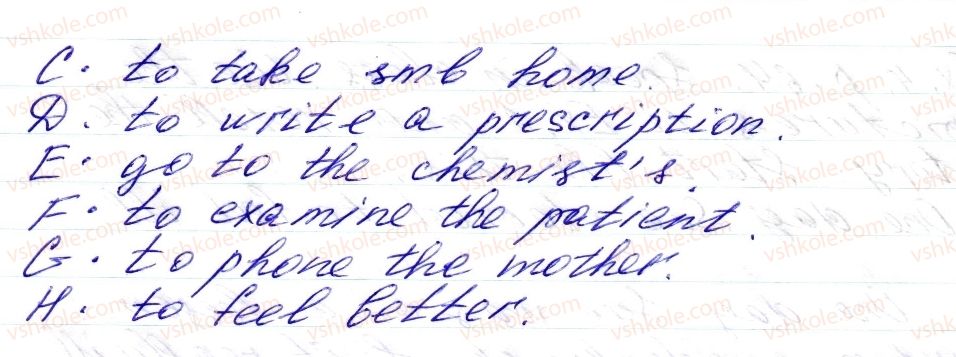 C. to take smb home.
D. to write a prescription.
E. go to the chemist's.
F. to examine the patient.
G. to phone the mother.
H. to feel better.